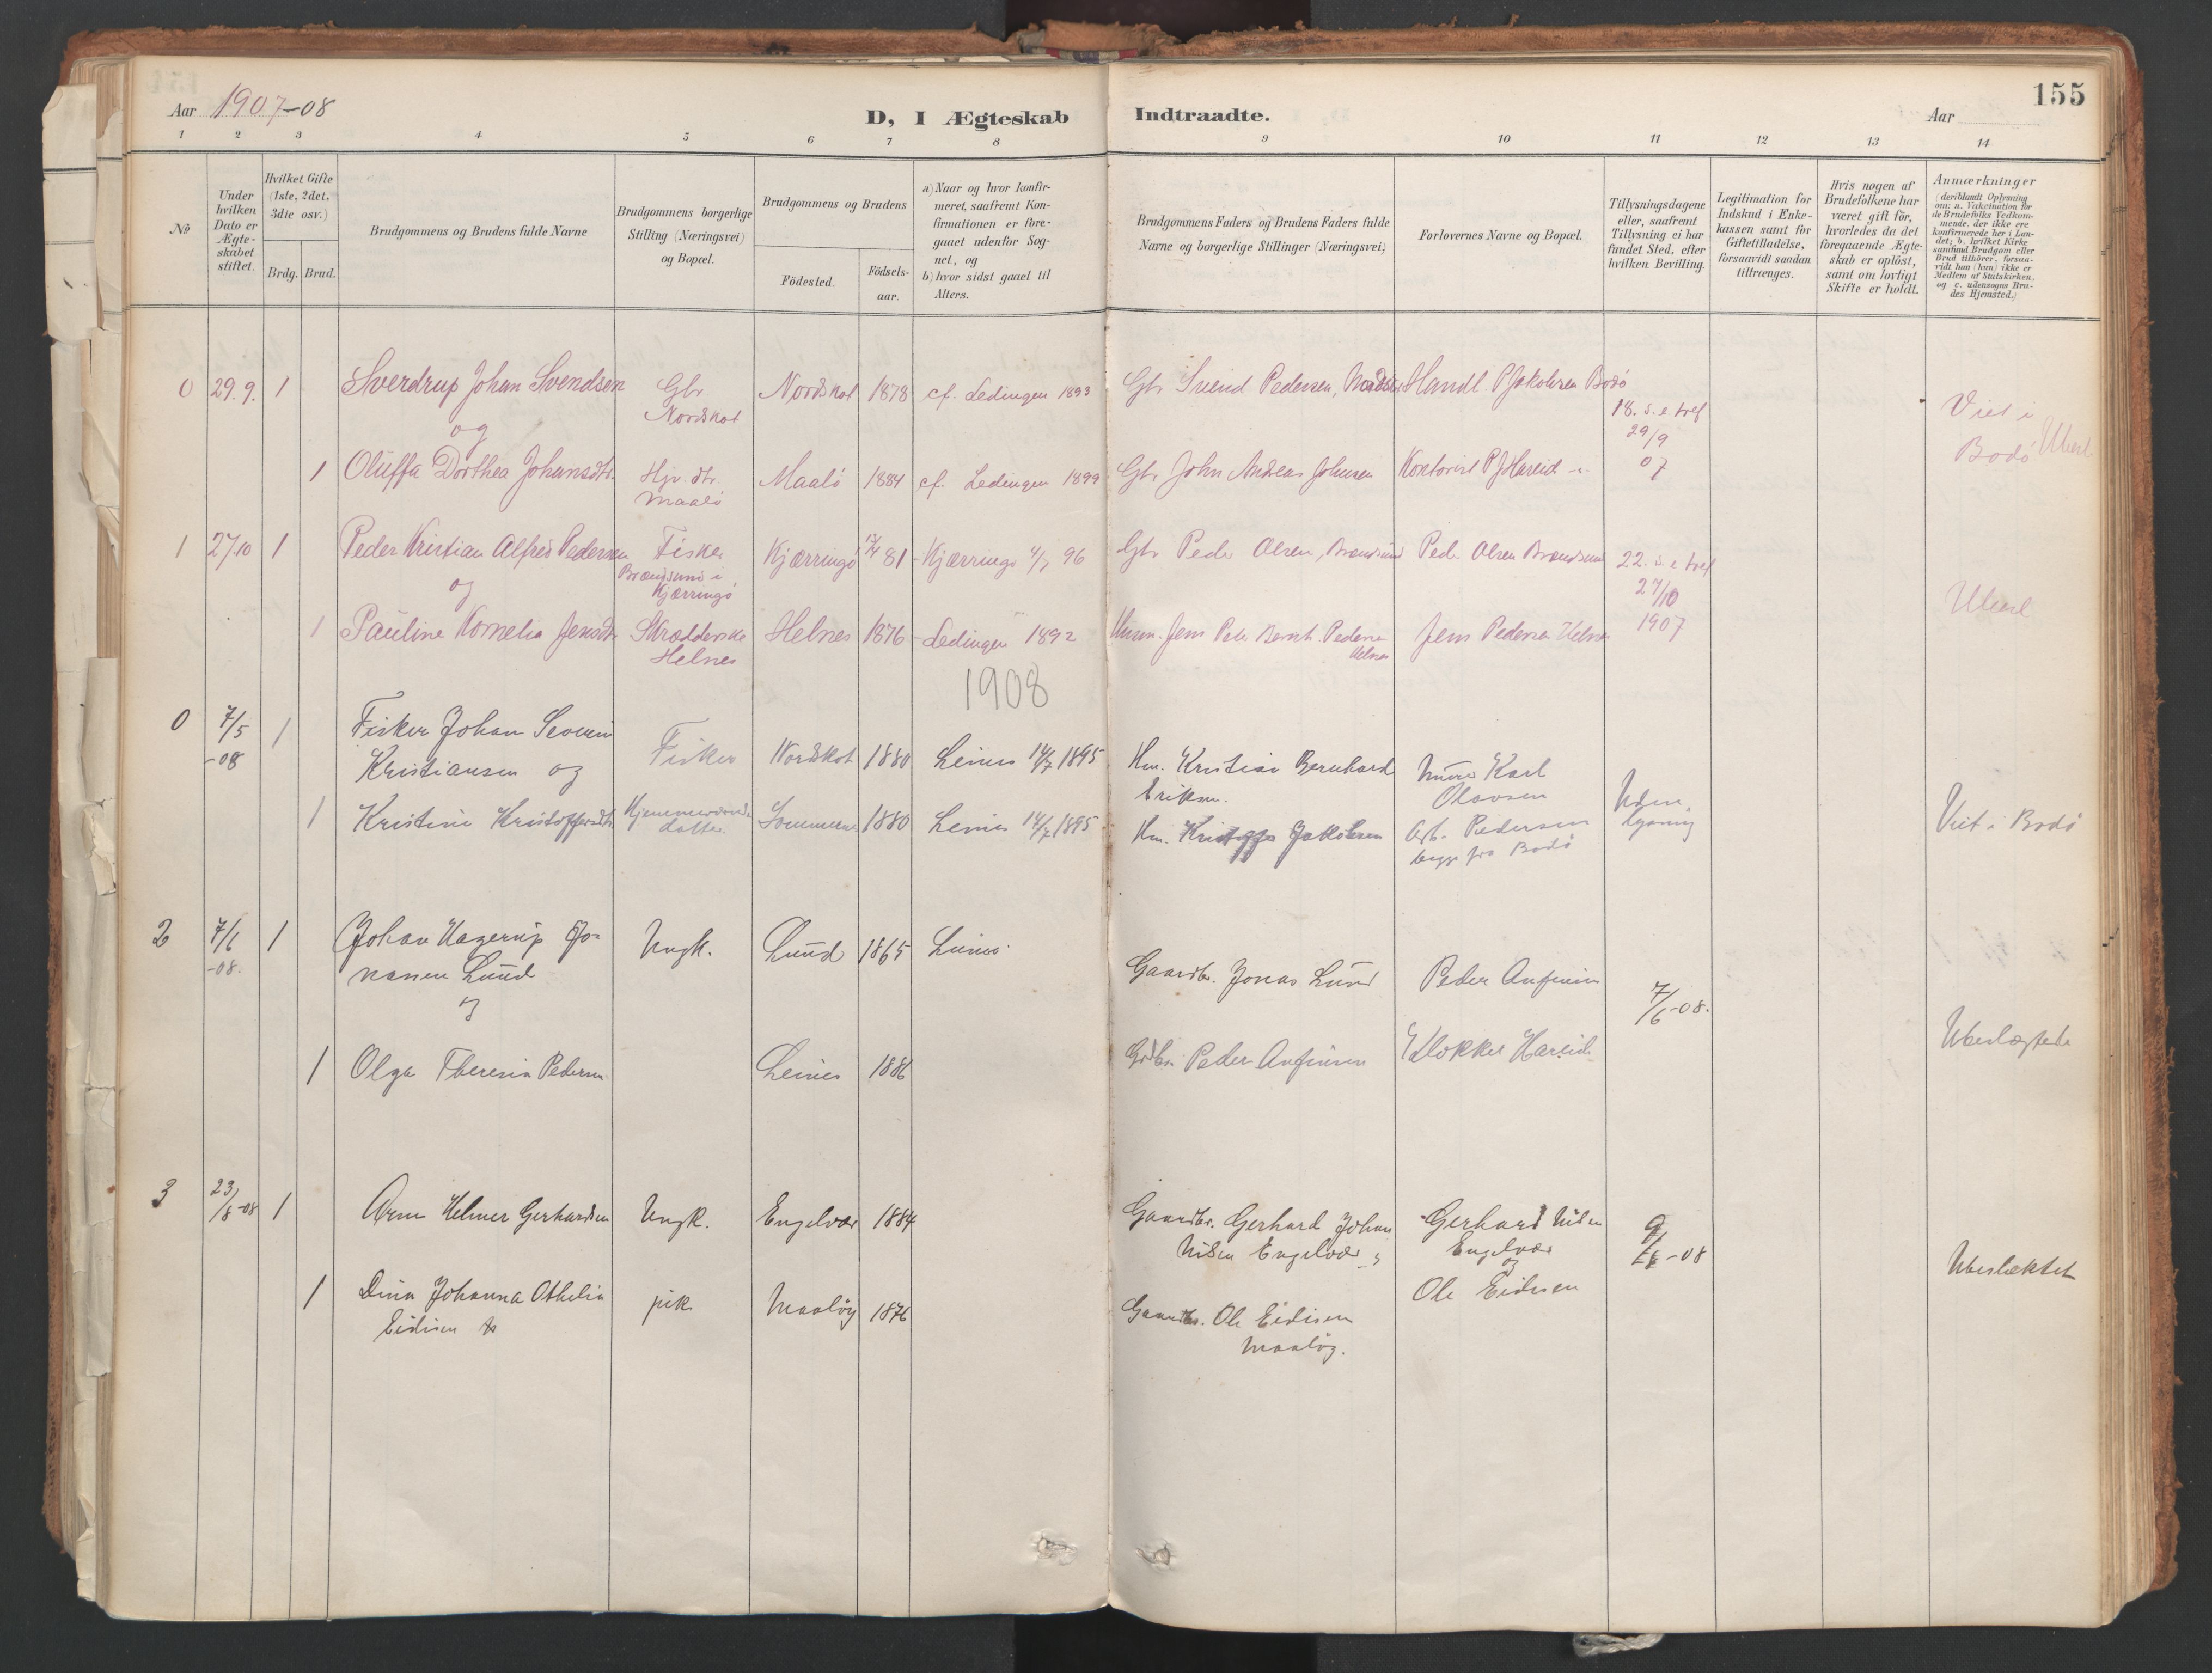 155
Aar 1907-08
D, I Ægteskab Indtraadte.
Aar
1 2 3 4 5 6 7 8 9 10 11 12 13 14
№
Under
hvilken
Dato er
Ægte-
skabet
stiftet.
Hvilket Gifte
(1ste, 2det,
3die osv.)
Brdg. Brud.
Brudgommens og Brudens fulde Navne
Brudgommens borgerlige
Stilling (Næringsvei)
og Bopæl.
Brudgommens og Brudens
Födested.
Födsels-
aar.
a) Naar og hvor konfir-
meret, saafremt Kon-
firmationen er fore-
gaaet udenfor Sog-
net, og
b) hvor sidst gaaet til
Alters.
Brudgommens Faders og Brudens Faders fulde
Navne og borgerlige Stillinger (Næringsvei)
Forlovernes Navne og Bopæl.
Tillysningsdagene
eller, saafremt
Tillysning ei har
fundet Sted, efter
hvilken Bevilling.
Legitimation for
Indskud i Enke-
kassen samt for
Giftetilladelse,
forsaavidt saadan
tiltrænges.
Hvis nogen af
Brudefolkene har
været gift för,
hvorledes da det
foregaaende Ægte-
skab er oplöst,
samt om lovligt
Skifte er holdt.
Anmærkninger
(deriblandt Oplysning
om: a. Vakcination for
de Brudefolks Vedkom-
mende, der ikke ere
konfirmerede her i Lan-
det; b. hvilket Kirke-
samfund Brudgom eller
Brud tilhörer, forsaa-
vidt han (hun) ikke er
Medlem af Statskirken,
og c. udensogns Bru-
des Hjemsted.)
0 29.9. 1 Sverdrup Johan Svendsen Gbr Nordskot 1878 cf. Ledingen 1893 Gbr Svend Pedersen, Handl. P Jakobsen Bodö
Nordskot
18. s. e tref
29/9
07
Viet i
Bodö Ubesl
og
1 Oluffa Dorthea Johansdtr. Hjv. dtr. Maalö 1884 cf. Ledingen 1899 Gbr John Andreas Johnsen Kontorist P J Hareid
Maalö
1 27/10 1 Peder Kristian Alfred Pedersen Fisker Kjærringö 81 Kjærringö 96 Gbr Peder Olsen, Brændsund Peder Olsen Brændsund 22. s. e tref
Brændsund i
Kjærringö
27/10
1907
Ubesl
og
1 Pauline Kornelia Jensdtr Skrædderske Helnes 1876 Ledingen 1892 Husm. Jens Peder Bernh. Pedersen Jens Pedersen Helnes
Helnes
Helnes
1908
0 7/5 1 Fisker Johan Severin Fisker Nordskot 1880 Leines 14/7 1895 Hm. Kristian Bernhard Murer Karl
-08 Kristiansen og Eriksen. Olavsen
1 Kristine Kristoffersdtr Hjemmeværende Sommernes 1880 Leines 14/7 1895 Hm. Kristoffer Jakobsen Arb. Pedersen
Datter
begge fra Bodö
Uden
lysning
Viet i Bodö
2 7/6 1 Johan Hagerup Jo- Ungk. Lund 1865 Leines
-08. nassen Lund Gaardbr. Jonas Lund Peder Anfinsen 7/6-08.
og
1 Olga Theresia Pedersen Leines 1886 Grdbr. Peder Anfinsen Klokker Hareid Ubeslægtede
3 23/8-08 1 Arne Helmer Gerhardsen Ungk. Engelvær 1884 Gaardbr. Gerhard Johan Gerhard Nilsen
Nilsen Engelvær Engelvær
og
-08
Ubeslektet
1 Dina Johanna Othelia pike Maalöy 1876 Gaardbr. Ole Eidisen Ole Eidisen
Eidisen
Maalöy.